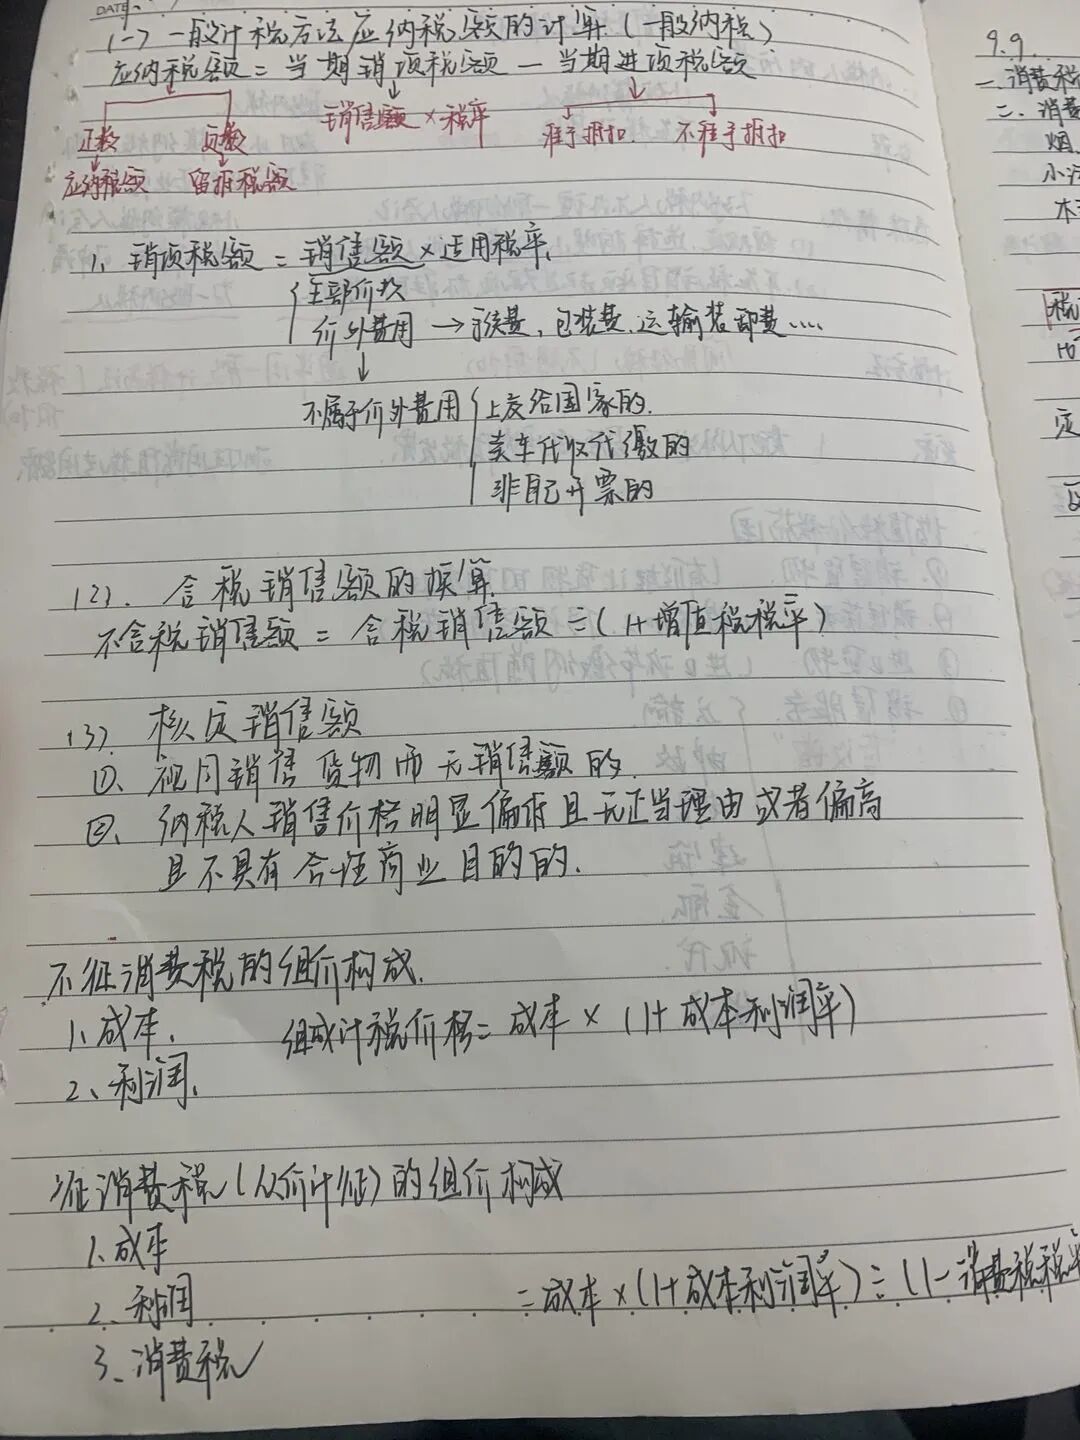 DATE
(一) 一般计税方法应纳税额的计算 (一般纳税)
应纳税额 = 当期销项税额 — 当期进项税额
正数 负数 销售额 × 税率 准予抵扣. 不准予抵扣
应纳税额 留抵税额
1、销项税额 = 销售额 × 适用税率、
全部价款
价外费用 → 手续费、包装费、运输装卸费....
不属于价外费用 上交给国家的.
卖车代收代缴的
非自己开票的
(2). 含税销售额的换算.
不含税销售额 = 含税销售额 ÷ (1+增值税税率)
(3). 核定销售额
①、视同销售货物而无销售额的.
②、纳税人销售价格明显偏低且无正当理由或者偏高
且不具有合理商业目的的.
不征消费税的组价构成.
1、成本. 组成计税价格 = 成本 × (1+成本利润率)
2、利润、
征消费税(从价计征)的组价构成
1、成本
2、利润 = 成本 × (1+成本利润率) ÷ (1-消费税税率
3、消费税
9.9.
一、消费税
二、消费
烟
小汽
木
税
定